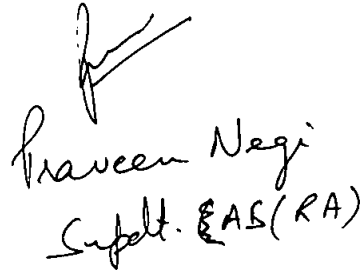 Praveen Negi
Supdt. EAB (RA)